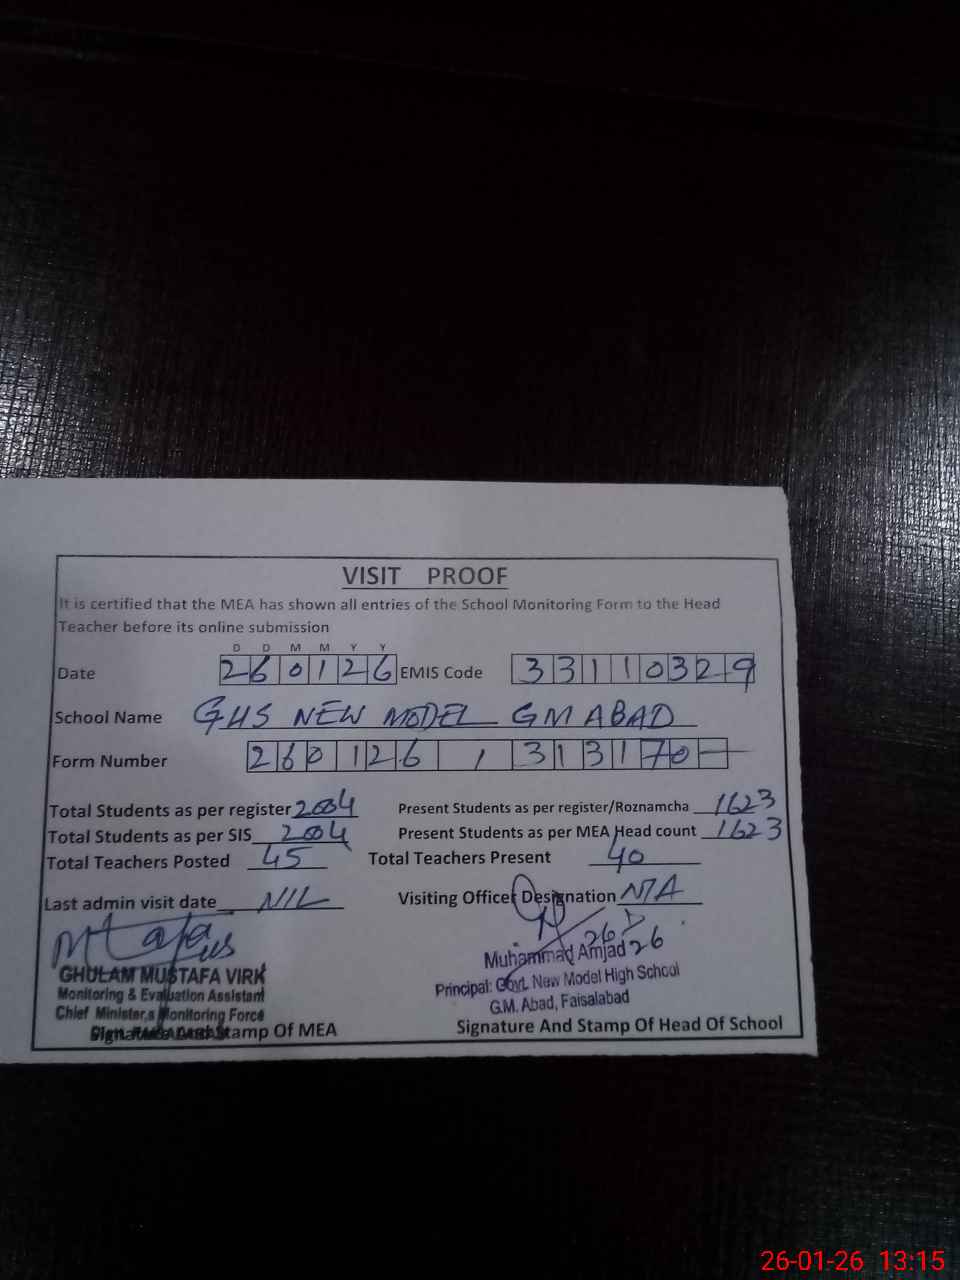 VISIT PROOF
It is certified that the MEA has shown all entries of the School Monitoring Form to the Head
Teacher before its online submission
D D M M Y Y
Date 260126 EMIS Code 33110329
School Name GHS NEW MODEL GM ABAD
Form Number 260126 / 313170 -
Total Students as per register 2004 Present Students as per register/Roznamcha 1623
Total Students as per SIS 2004 Present Students as per MEA Head count 1623
Total Teachers Posted 45 Total Teachers Present 40
Last admin visit date NIL Visiting Officer Designation N/A
Muhammad Amjad
GHULAM MUSTAFA VIRK
Principal: Govt. New Model High School
Monitoring & Evaluation Assistant
G.M. Abad, Faisalabad
Chief Minister,s Monitoring Force
Signature And Stamp Of MEA Signature And Stamp Of Head Of School
26-01-26 13:15